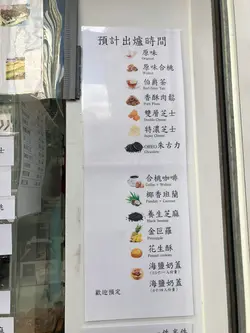 預計出爐時間
原味
Original
原味合桃
Walnut
伯爵茶
Earl Grey Tea
香酥肉鬆
Pork Floss
雙層芝士
Double Cheese
特濃芝士
OREO朱古力
Chocolate
合桃咖啡
Coffee + Walnut
椰香班蘭
Pandan + Coconut
養生芝麻
Black Sesame
金巨羅
Pineapple
花生酥
Peanut cookies
海鹽奶蓋
海鹽奶蓋
歡迎預定